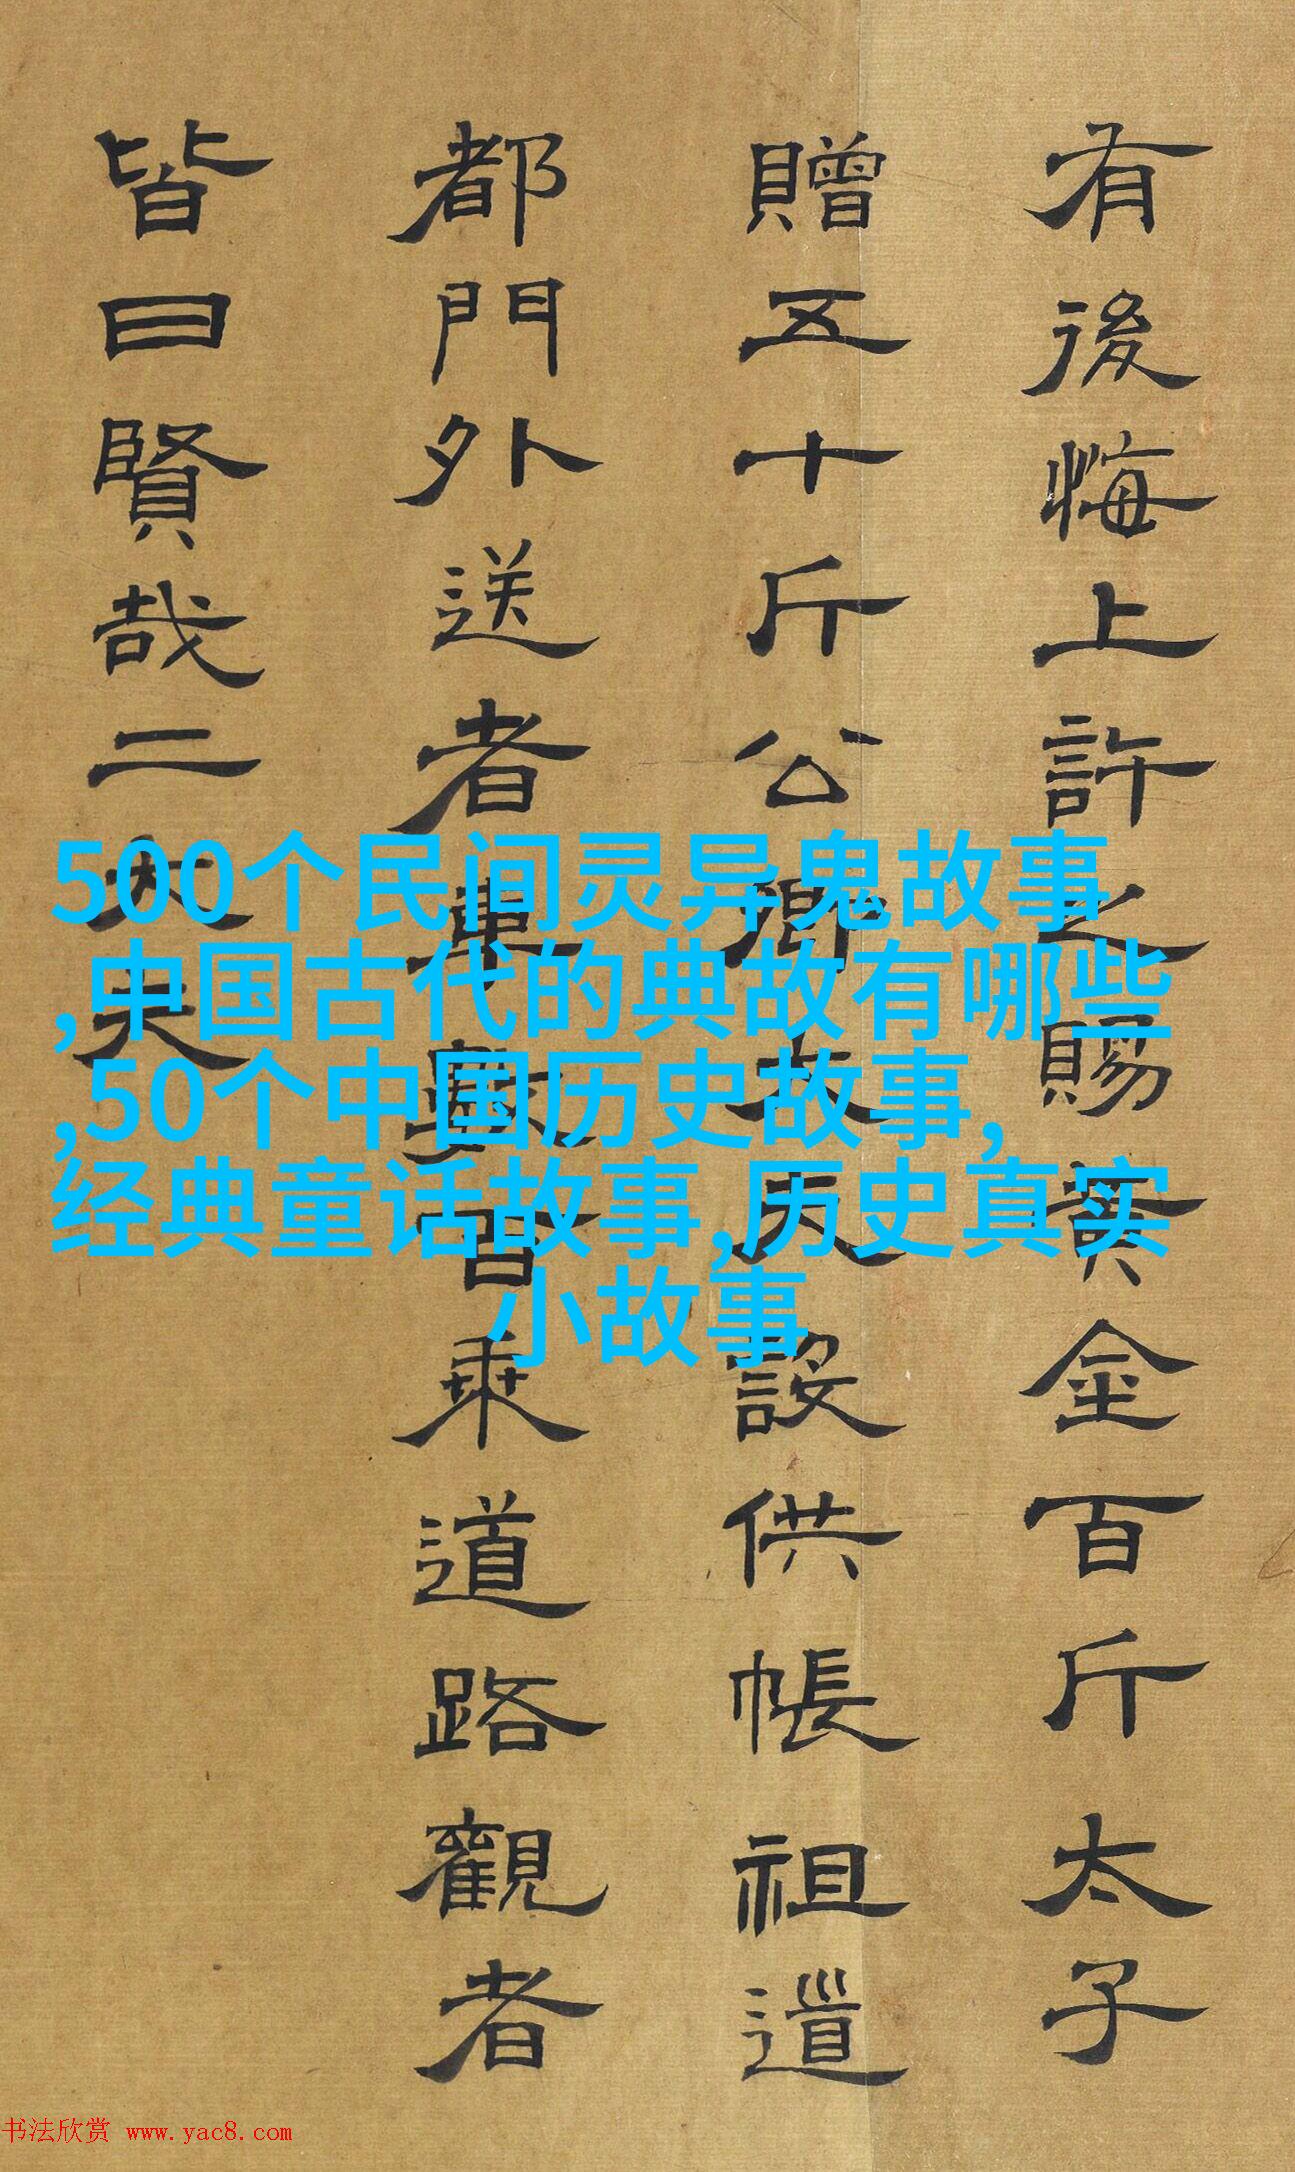 有後悔上許之賜黃金百斤太子
贈五十斤公卿大夫設供帳祖道
都門外送者車數百乘道路觀者
皆曰賢哉二大夫
500个民间灵异鬼故事
,中国古代的典故有哪些
,50个中国历史故事,
经典童话故事,历史真实
小故事
书法欣赏 www.yac8.com